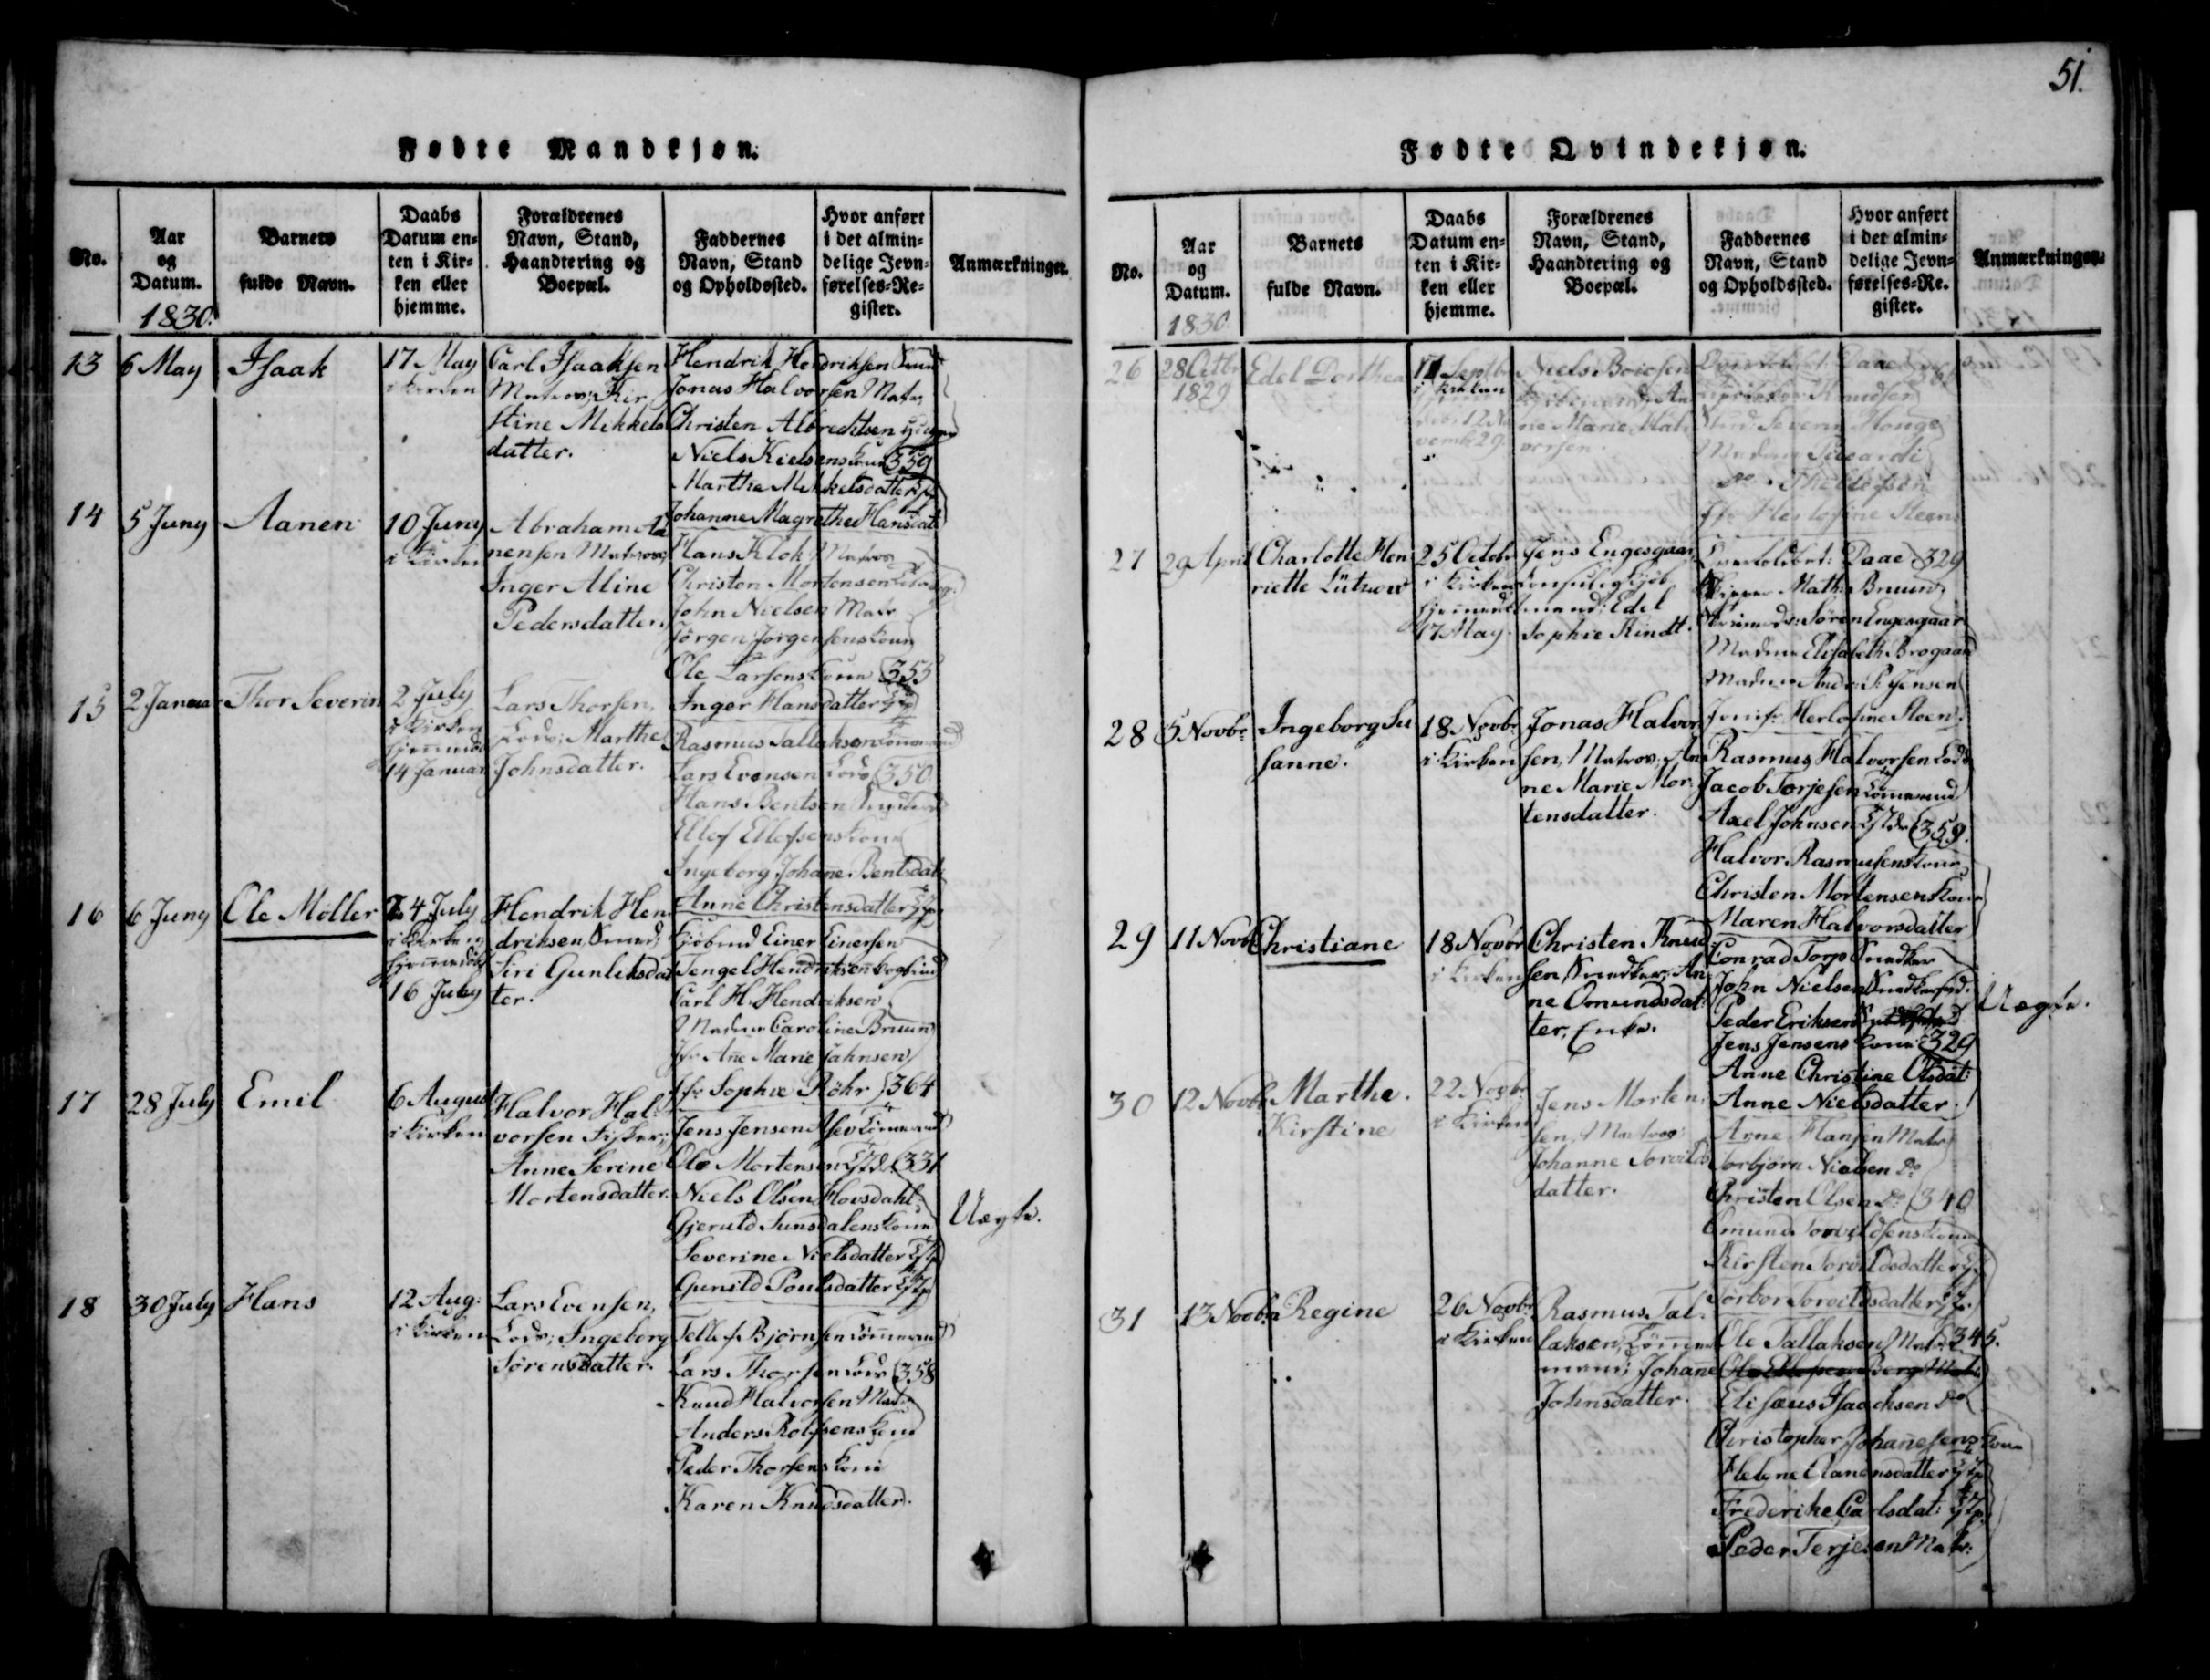 Fødte Mandkjøn.
No.
Aar og Datum.
1830.
Barnets fulde Navn.
Daabs Datum enten i Kirken eller hjemme.
Forældrenes Navn, Stand, Haandtering og Boepæl.
Faddernes Navn, Stand og Opholdssted.
Hvor anført i det almindelige Jevnførelses-Register.
Anmærkninger.
13
6 May
Isaak
17 May
i Kirken
Carl Isaaksen
Matros; Kir
stine Mikkels
datter.
Hendrik Hendriksen Smed
Jonas Halvorsen Matr.
Christen Albrechtsen
Niels Kielsens Kone 359
Marthe Mikkelsdatter
Johanne Magrethe Hansdat
14
5 Juny
Aanen
10 Juny
i Kirken
Abraham Aa
nensen Matros;
Inger Aline
Pedersdatter.
Hans Klok Matros
Christen Mortensen
John Nielsen Matr
Jørgen Jørgensens Kone
Ole Larsens Kone 355
Inger Hansdatter
15
2 Januar
Thor Severin
2 July
i Kirken
hjemmedøbt
14 Januar
Lars Thorsen,
Lods; Marthe
Johnsdatter.
Rasmus Tallaksen Tømmermand
Lars Evensen Lods 350
Hans Bentsen
Ellef Ellefsens Kone
Ingeborg Johane Bentsdat
Anne Christensdatter
16
6 Juny
Ole Møller
24 July
i Kirken
hjemmedøbt
16 July
Hendrik Hen
driksen Smed;
Siri Gunleksdat
ter.
Kjøbmd Einer Einersen
Tengel Hendriksen Bogbind
Carl H. Hendriksen
Madme Caroline Bruun
Jfr Ane Marie Jahnsen
Jfr Sophie Röhr 364
17
28 July
Emil
6 August
i Kirken
Halvor Hal
vorsen Fisker;
Anne Serine
Mortensdatter.
Jens Jensen Tømmermand
Ole Mortensen 331
Niels Olsen Hovsdahl
Gjeruld Sunsdalens Kone
Severine Nielsdatter
Gunild Poulsdatter
Uægte.
18
30 July
Hans
12 Aug:
i Kirken
Lars Evensen,
Lods; Ingeborg
Sørensdatter.
Tellef Bjørnsen Tømmermand
Lars Thorsen Lods 358
Knud Halvorsen Matr
Anders Rolfsens Kone
Peder Thorsens Kone
Karen Knudsdatter.
51.
Fødte Qvindekjøn.
No.
Aar og Datum.
1830
Barnets fulde Navn.
Daabs Datum enten i Kirken eller hjemme.
Forældrenes Navn, Stand, Haandtering og Boepæl.
Faddernes Navn, Stand og Opholdssted.
Hvor anført i det almindelige Jevnførelses-Register.
Anmærkninger.
26
28 Octbr
1829
Edel Dorthea
11 Septbr
i Kirken
12 No
vembr 29.
Niels Boiesen
Kjøbmand; An
ne Marie Hal
vorsen.
Daae
Knudsen
Stud: Severin Houge
Madme Siccardi
Do Thellefsen
Jfr Herlofine Steen
27
29 April
Charlotte Hen
riette Lützow
25 Octobr
i Kirken
hjemmedøbt
17 May.
Jens Engesgaar
Consul og Kjøb
mand; Edel
Sophie Kindt.
Overtoldbet: Daae 329
Math: Bruun
Søren Engesgaar
Madme Elisabeth Brogaard
Madme And: P. Jensen
Jomfr Herlofine Steen
28
5 Novbr
Ingeborg Su
sanne.
18 Novbr
i Kirken
Jonas Halvor
sen, Matros; An
ne Marie Mor
tensdatter.
Rasmus Halvorsen Lods
Jacob Torjesen Tømmermand
Axel Johnsen 359.
Halvor Rasmusens Kone
Christen Mortensens Kone
Maren Halvorsdatter
29
11 Novbr
Christiane
18 Novbr
i Kirken
Christen Knud
sen, Snedker; An
ne Omundsdat
ter, Enke.
Conrad Torp Snedker
John Nielsen
Peder Eriksen
Jens Jensens Kone 329
Anne Christine Olsdat:
Anne Nielsdatter.
Uægte.
30
12 Novbr
Marthe
Kirstine
22 Novbr
i Kirken
Jens Morten
sen, Matros;
Johanne Torvilds
datter.
Arne Hansen Matr
Torbjørn Nielsen Do
Christen Olsen Do 340
Omund Torvildsens Kone
Kirsten Torvildsdatter
Tørbor Torvildsdatter
31
13 Novbr
Regine
26 Novbr
i Kirken
Rasmus Tal
laksen, Tømmer
mand; Johane
Johnsdatter.
Ole Tallaksen Matr 345.
Elisæus Isaachsen Do
Christopher Johanesens Kone
Helene Aanonsdatter
Frederike Carlsdat:
Peder Terjesen Matr: